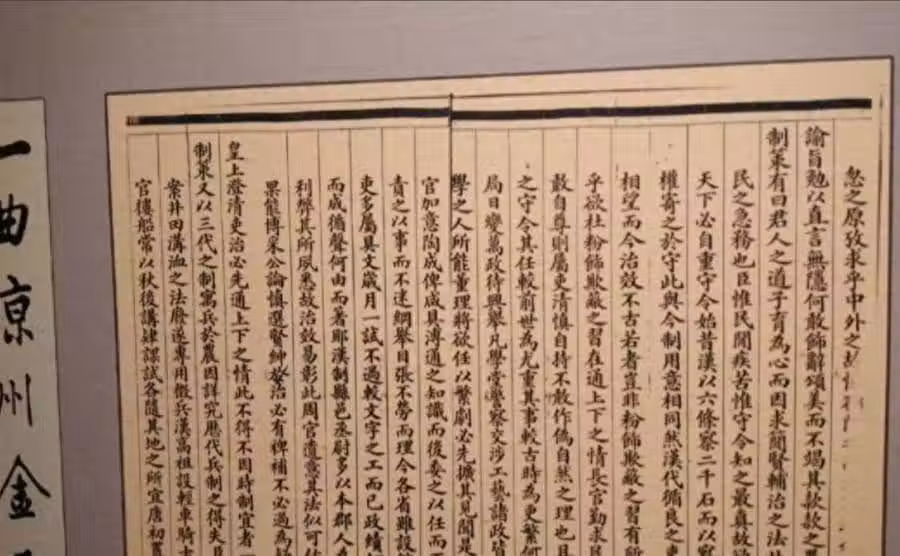 忽之原孜求乎中外之
諭旨勉以直言無隱何敢飾辭頌美而不竭其款款之
制策有曰君人之道子育為心而因求簡賢輔治之法
民之急務也臣惟民間疾苦惟守令知之最真故
天下必自重守令始昔漢以六條察二千石而以
權寄之於守此與今制用意相同然漢代循良之
相望而今治效不古若者豈非粉飾欺蔽之習有所
乎欲杜粉飾欺蔽之習在通上下之情長官勤求
敢自尊則屬吏清慎自持不敢作偽自然之理也
之守令其任較前世為尤重其事較古時為更繁何
局日變萬政待興舉凡學堂警察交涉工藝諸政皆
學之人所能董理將欲任以繁劇必先擴其見聞是
官如意陶成俾成具溥通之知識而後委之以任而
責之以事而不迷綱舉目張不勞而理今各省雖設
吏多屬具文歲月一試不過較文字之工而已政績
而成循聲何由而著耶漢制縣邑丞尉多以本郡人為
利弊其所夙悉故治效易彰此周官遺意其法似可
果能博采公論慎選賢紳警治必有裨補不必過為
皇上澄清吏治必先通上下之情此不得不因時制宜者
制策又以三代之制寓兵於農因詳究歷代兵制之得失
案井田溝洫之法廢遂專用徵兵漢高祖設輕車騎士
官樓船常以秋後講肄課試各隨其地之所宜唐初
一曲京州金